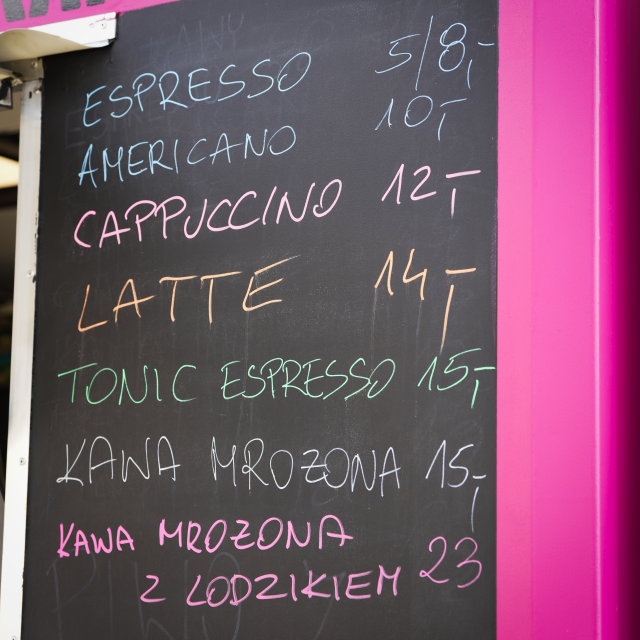 ESPRESSO 5/8,-
AMERICANO 10,-
CAPPUCCINO 12,-
LATTE 14,-
TONIC ESPRESSO 15,-
KAWA MROZONA 15,-
KAWA MROZONA
Z LODZIKIEM 23